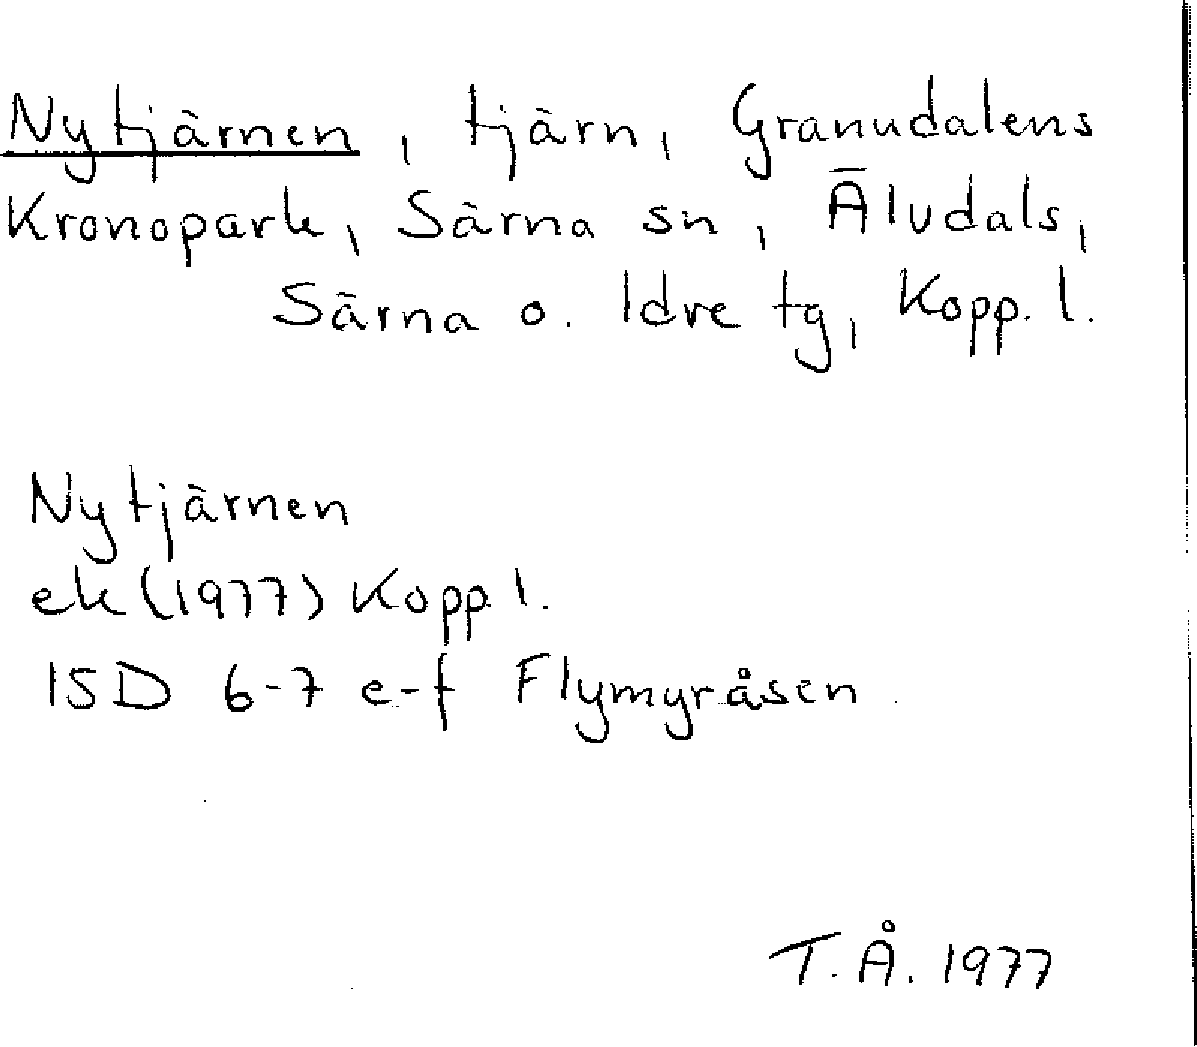 Nytjärnen, tjärn, Granudalens
Kronopark, Särna sn, Älvdals,
Särna o. Idre tg, Kopp. l.
Nytjärnen
ek (1977) Kopp l.
15D 6-7 e-f Flymyråsen.
T.Å. 1977